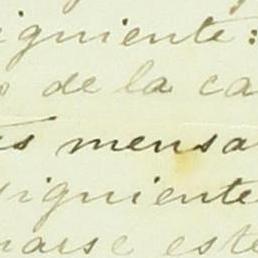 siguiente:
de la ca
mensa
siguiente
narse este